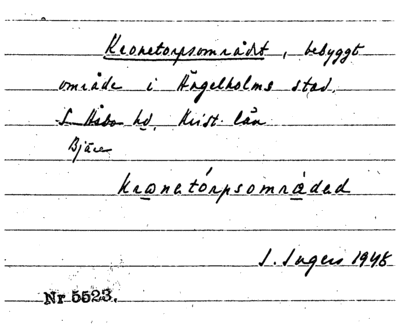 Kronetorpsområdet, bebyggt
område i Ängelholms stad,
S. Åsbo hd, Krist. län
Bjäre
kronetórpsområdəd
I. Ingers 1948
Nr 5523.